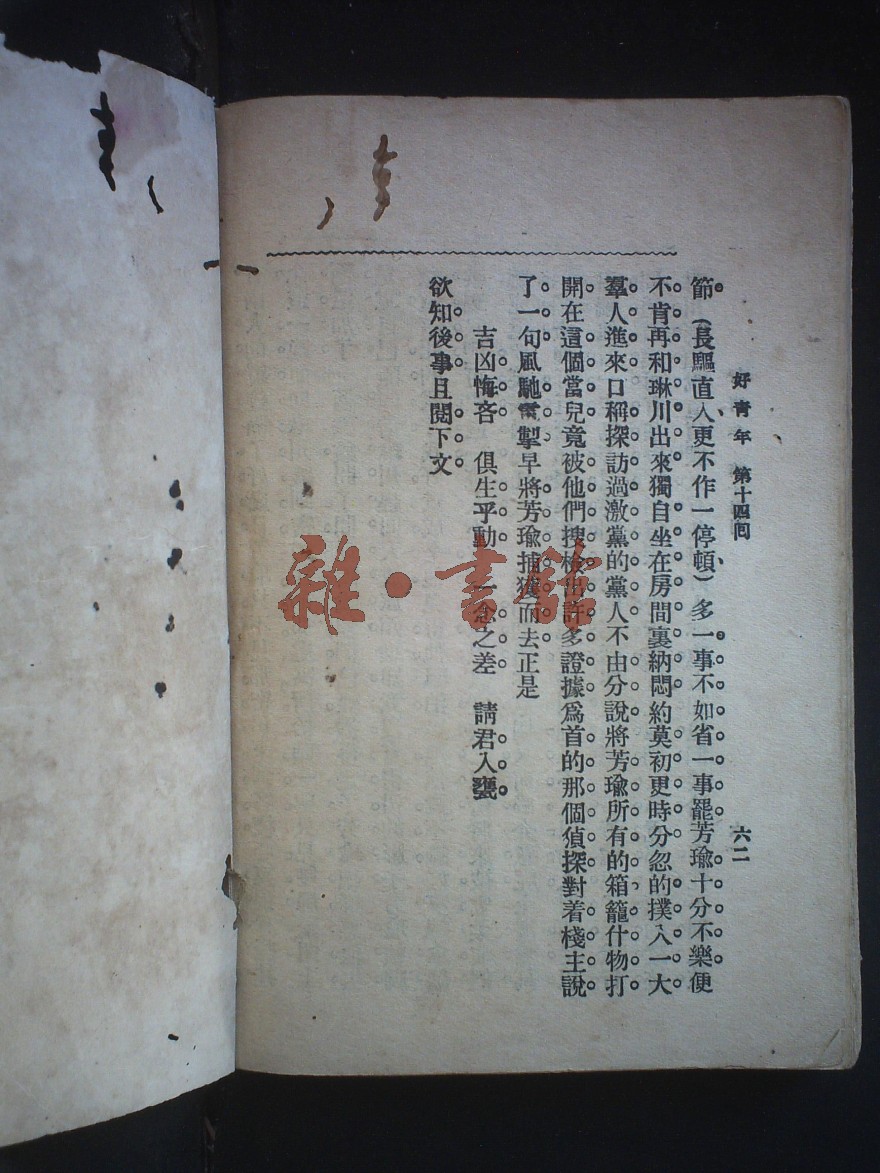 好青年 第十四囘 六二
節(長驅直入更不作一停頓)多一事不如省一事罷芳瑜十分不樂便
不肯再和琳川出來獨自坐在房間裏納悶約莫初更時分忽的撲入一大
羣人進來口稱探訪過激黨的黨人不由分說將芳瑜所有的箱籠什物打
開在這個當兒竟被他們搜檢出許多證據爲首的那個偵探對着棧主說
了一句風馳電掣早將芳瑜捕獲而去正是
吉凶悔吝 俱生乎動 一念之差 請君入甕
欲知後事且閱下文
雜·書館